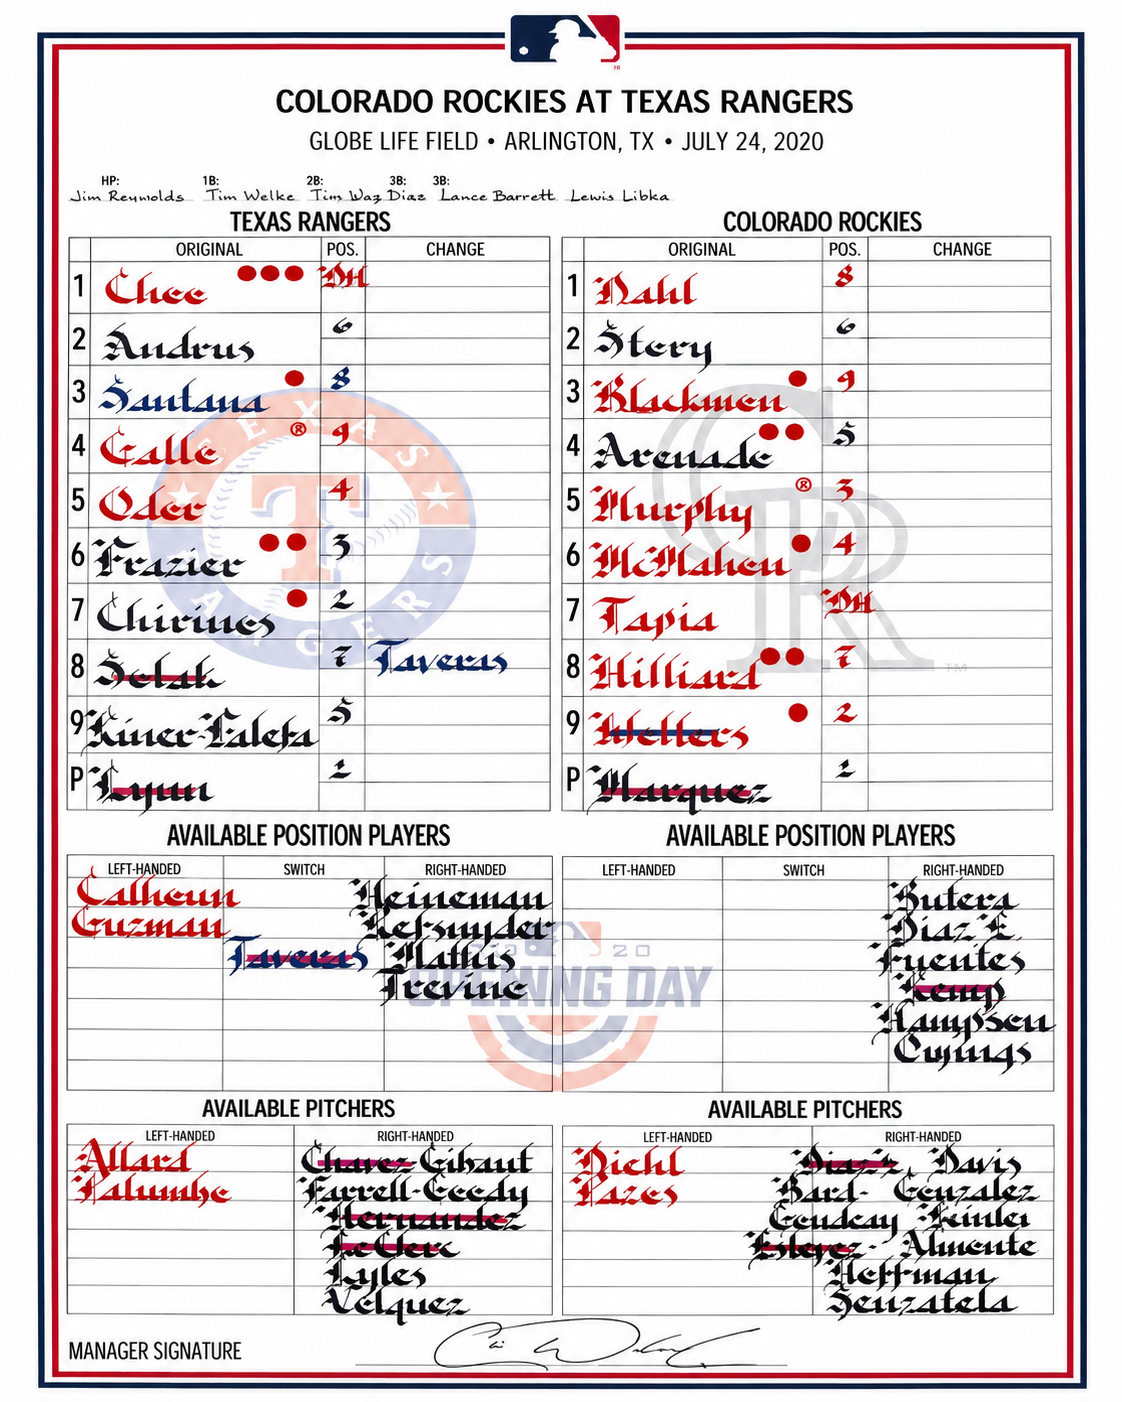 COLORADO ROCKIES AT TEXAS RANGERS
GLOBE LIFE FIELD • ARLINGTON, TX • JULY 24, 2020
HP: 1B: 2B: 3B: 3B:
Jim Reynolds Tim Welke Tim Waz Diaz Lance Barrett Lewis Libka
TEXAS RANGERS
ORIGINAL POS. CHANGE
1 Chee DH
2 Andrus 6
3 Santana 8
4 Galle ® 9
5 Oder 4
6 Frazier 3
7 Chirines 2
8 Selak 7 Taveras
9 Kiner-Falefa 5
P Lynn 1
COLORADO ROCKIES
ORIGINAL POS. CHANGE
1 Dahl 8
2 Stery 6
3 Blackmen 9
4 Arenade 5
5 Murphy ® 3
6 McMahen 4
7 Tapia DH
8 Hilliard 7
9 Welters 2
P Marquez 1
TEXAS
RANGERS
T
CR
TM
AVAILABLE POSITION PLAYERS
LEFT-HANDED SWITCH RIGHT-HANDED
Calheun Heineman
Guzman Refsnyder
Taveras Mathis
Trevine
AVAILABLE POSITION PLAYERS
LEFT-HANDED SWITCH RIGHT-HANDED
Butera
Diaz E.
Fuentes
Kemp
Hampsen
Owings
20 20
OPENING DAY
AVAILABLE PITCHERS
LEFT-HANDED RIGHT-HANDED
Allard Chavez Gibaut
Palumbe Farrell-Geedy
Hernandez
LeClerc
Lyles
Velquez
AVAILABLE PITCHERS
LEFT-HANDED RIGHT-HANDED
Diehl Diaz Davis
Pazes Bard- Genzalez
Geudeay Kinler
Estevez- Almente
Heffman
Senzatela
MANAGER SIGNATURE